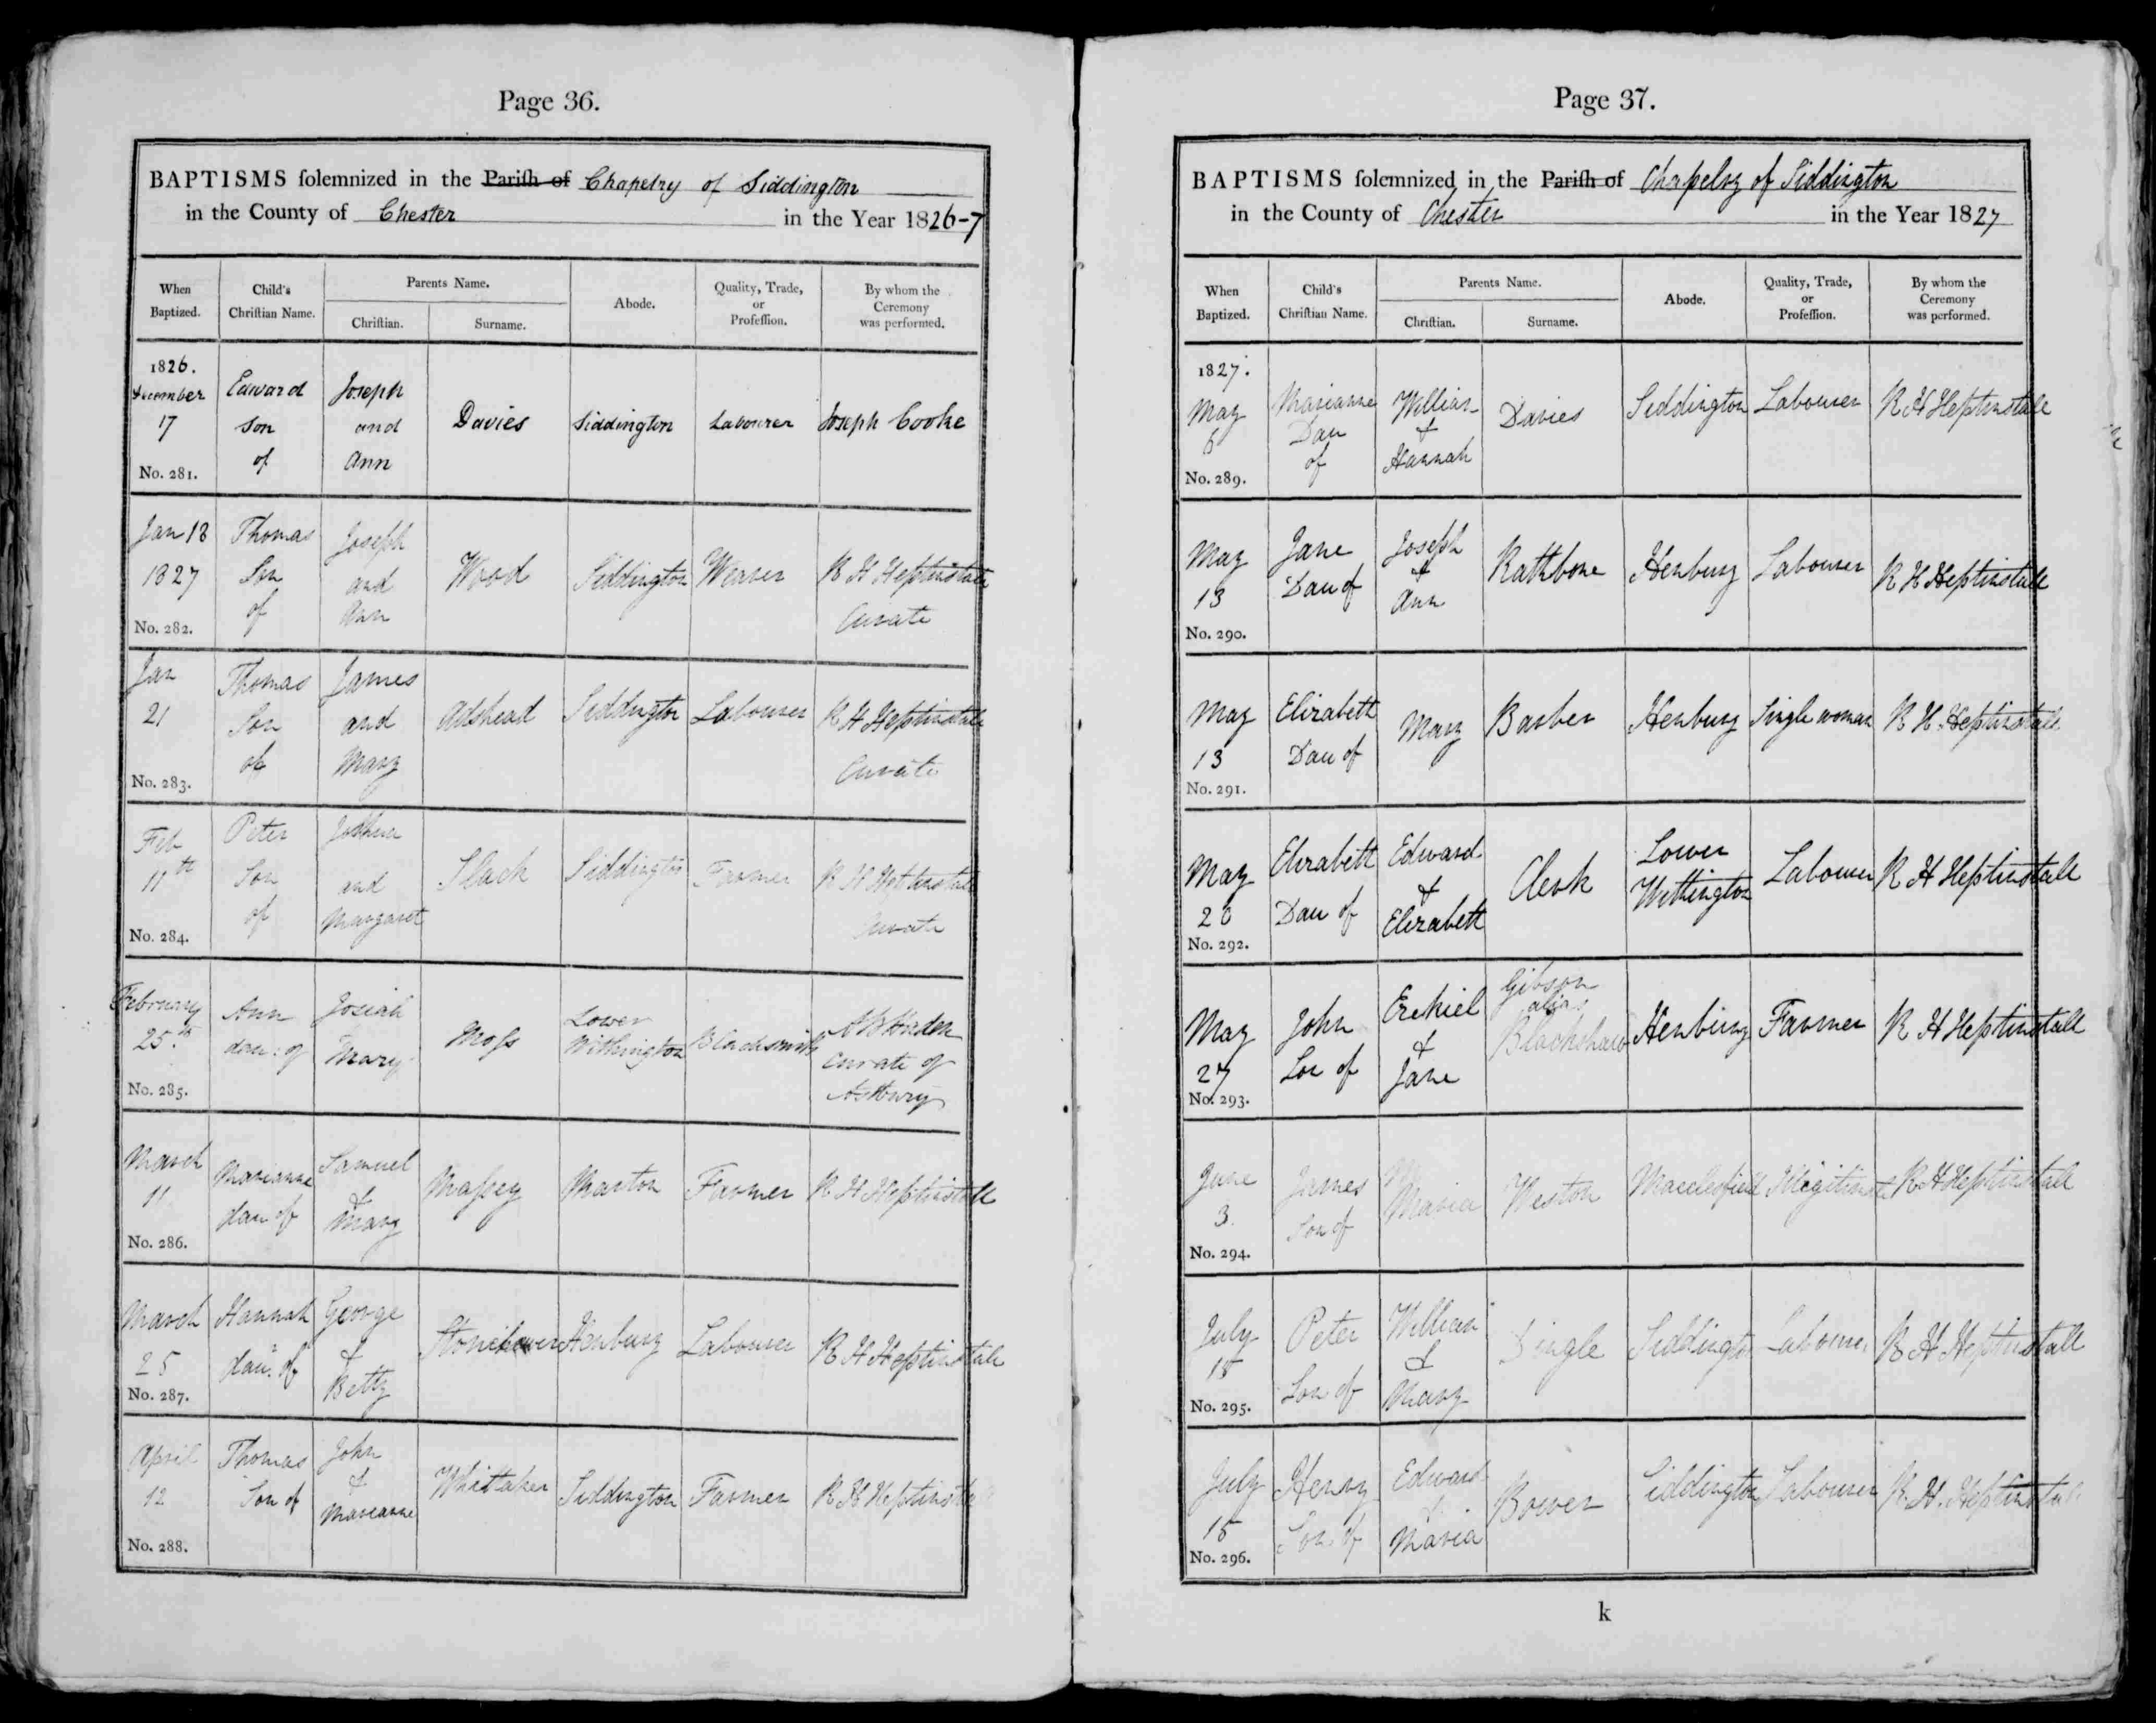 Page 36.
BAPTISMS solemnized in the Parish of Chapelry of Siddington
in the County of Chester in the Year 1826-7
When Baptized. Child's Christian Name. Parents Name. Christian. Surname. Abode. Quality, Trade, or Profession. By whom the Ceremony was performed.
1826. December 17 No. 281. Edward son of Joseph and Ann Davies Siddington Labourer Joseph Cooke
Jan 18 1827 No. 282. Thomas Son of Joseph and Ann Wood Siddington Weaver R H Heptinstall Curate
Jan 21 No. 283. Thomas Son of James and Mary Adshead Siddington Labourer R H Heptinstall Curate
Feb 11th No. 284. Peter Son of Joshua and Margaret Slack Siddington Farmer R H Heptinstall Curate
February 25th No. 285. Ann dau: of Josiah Mary Moss Lower Withington Blacksmith curate of Astbury
March 11 No. 286. Marianne dau of Samuel & Mary Massey Marton Farmer R H Heptinstall
March 25 No. 287. Hannah dau. of George & Betty Henbury Labourer R H Heptinstall
April 12 No. 288. Thomas Son of John & Marianne Whittaker Siddington Farmer R H Heptinstall
Page 37.
BAPTISMS solemnized in the Parish of Chapelry of Siddington
in the County of Chester in the Year 1827
When Baptized. Child's Christian Name. Parents Name. Christian. Surname. Abode. Quality, Trade, or Profession. By whom the Ceremony was performed.
1827. May 6 No. 289. Marianne Dau of William & Hannah Davies Siddington Labourer R H Heptinstall
May 13 No. 290. Jane Dau of Joseph & Ann Rathbone Henbury Labourer R H Heptinstall
May 13 No. 291. Elizabeth Dau of Mary Barber Henbury Single woman R H Heptinstall
May 20 No. 292. Elizabeth Dau of Edward & Elizabeth Clerk Lower Withington Labourer R H Heptinstall
May 27 No. 293. John Son of Ezekiel & Jane Gibson alias Blackshaw Henbury Farmer R H Heptinstall
June 3. No. 294. James Son of Maria Weston Macclesfield Illigitimate R H Heptinstall
July 15 No. 295. Peter Son of William & Mary Dingle Siddington Labourer R H Heptinstall
July 15 No. 296. Henry Son of Edward & Maria Bower Siddington Labourer R. H. Heptinstall
k